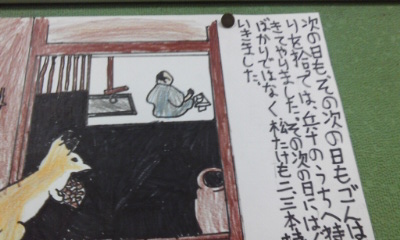 次の日も、その次の日もごんは
りを拾っては、兵十のうちへ持
きてやりました。その次の日には、
ばかりではなく、松たけも二三本持
いきました。